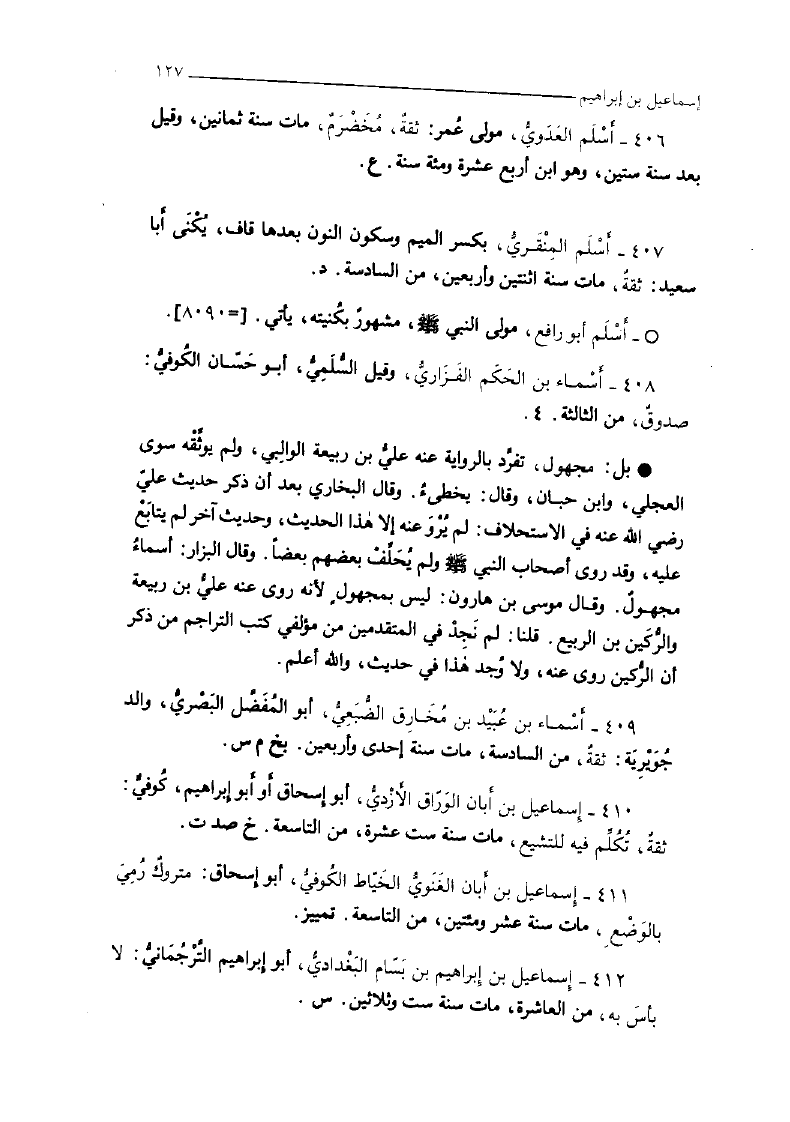 إسماعيل بن إبراهيم ١٢٧
٤٠٦ ـ أَسْلَم العَدَويُّ، مولى عُمر: ثقةٌ، مُخَضْرَمٌ، مات سنة ثمانين، وقيل
بعد سنة ستين، وهو ابن أربع عشرة ومئة سنة. ع.
٤٠٧ ـ أَسْلَم المِنْقَريُّ، بكسر الميم وسكون النون بعدها قاف، يُكْنَى أَبا
سعيد: ثقةٌ، مات سنة اثنتين وأربعين، من السادسة. د.
○ ـ أَسْلَم أبو رافع، مولى النبي ﷺ، مشهورٌ بكُنيته، يأتي. [=٨٠٩٠].
٤٠٨ ـ أَسْماء بن الحَكَم الفَزَاريُّ، وقيل السُّلَميُّ، أبو حَسَّان الكُوفيُّ:
صدوقٌ، من الثالثة. ٤.
● بل: مجهول، تفرَّد بالرواية عنه عليُّ بن ربيعة الوالِبي، ولم يوثِّقْه سوى
العجلي، وابن حبان، وقال: يخطىءُ. وقال البخاري بعد أن ذكر حديث عليّ
رضي الله عنه في الاستحلاف: لم يُرْوَ عنه إلا هٰذا الحديث، وحديث آخر لم يتابَعْ
عليه، وقد روى أصحاب النبي ﷺ ولم يُحَلِّفْ بعضهم بعضاً. وقال البزار: أسماءُ
مجهولٌ. وقال موسى بن هارون: ليس بمجهولٍ لأنه روى عنه عليُّ بن ربيعة
والرُّكَين بن الربيع. قلنا: لم نَجِدْ في المتقدمين من مؤلفي كتب التراجم من ذكر
أن الرُّكين روى عنه، ولا وُجد هٰذا في حديث، والله أعلم.
٤٠٩ ـ أَسْماء بن عُبَيْد بن مُخَارِق الضُّبَعِيُّ، أبو المُفَضَّل البَصْريُّ، والد
جُوَيْرِيَة: ثقةٌ، من السادسة، مات سنة إحدى وأربعين. بخ م س.
٤١٠ ـ إسماعيل بن أَبان الوَرَّاق الأَزْديُّ، أبو إسحاق أَو أَبو إبراهيم، كُوفيٌّ:
ثقةٌ، تُكُلِّم فيه للتشيع، مات سنة ست عشرة، من التاسعة. خ صد ت.
٤١١ ـ إسماعيل بن أَبان الغَنَويُّ الخَيَّاط الكُوفيُّ، أبو إسحاق: متروكٌ رُمِيَ
بالوَضْعِ، مات سنة عشر ومئتين، من التاسعة. تمييز.
٤١٢ ـ إسماعيل بن إبراهيم بن بَسَّام البَغْداديُّ، أَبو إبراهيم التُّرْجُمَانيُّ: لا
بأسَ به، من العاشرة، مات سنة ست وثلاثين. س.